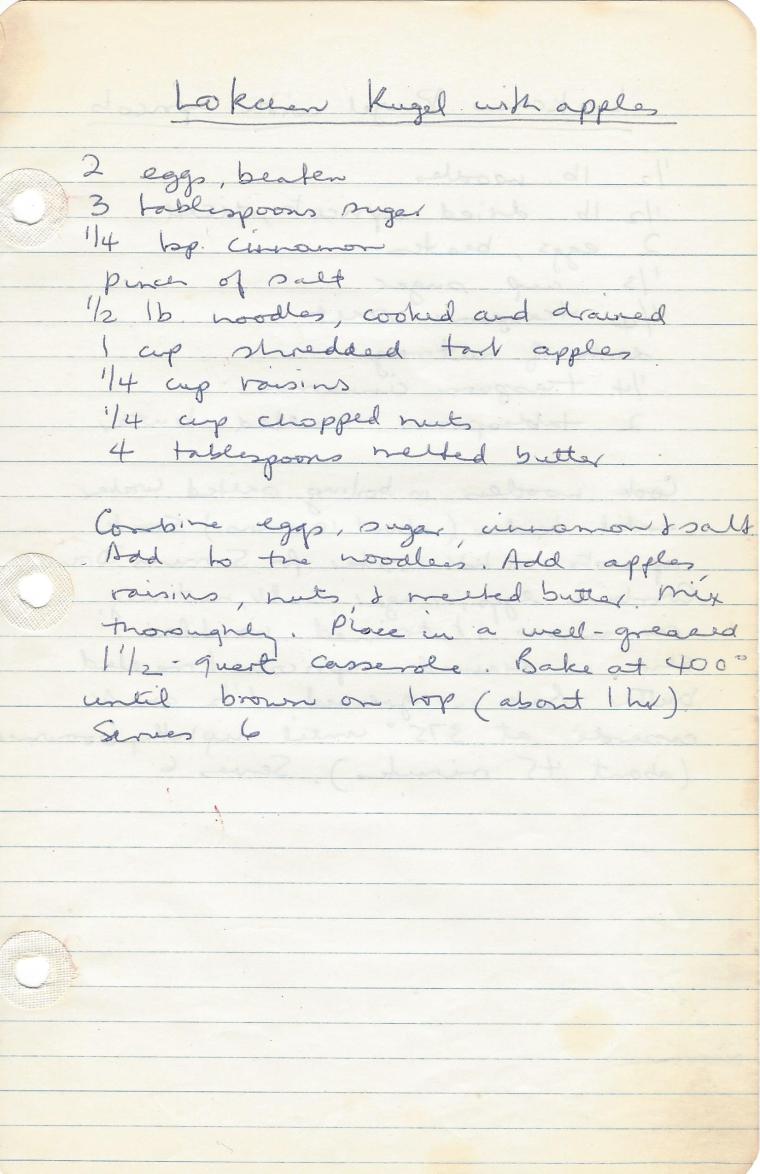 Lokchen Kugel with apples
2 eggs, beaten
3 tablespoons sugar
1/4 tsp. cinnamon
pinch of salt
1/2 lb. noodles, cooked and drained
1 cup shredded tart apples
1/4 cup raisins
1/4 cup chopped nuts
4 tablespoons melted butter
Combine eggs, sugar, cinnamon & salt.
Add to the noodles. Add apples,
raisins, nuts, & melted butter. Mix
thoroughly. Place in a well-greased
1 1/2-quart casserole. Bake at 400°
until brown on top (about 1 hr)
Serves 6